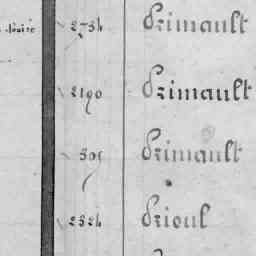 2734 Primault
2190 Primault
505 Primault
2324 Prioul